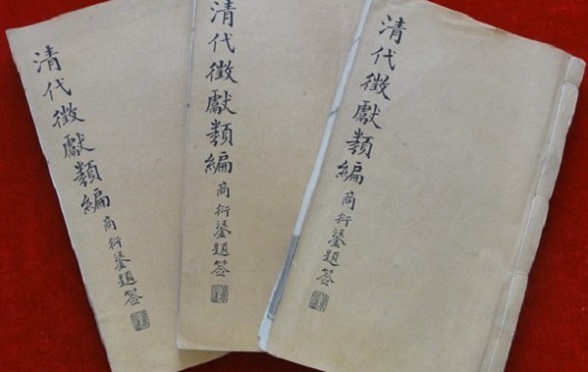 清代徵獻類編
商衍鎏題簽
清代徵獻類編
商衍鎏題簽
清代徵獻類編
商衍鎏題簽